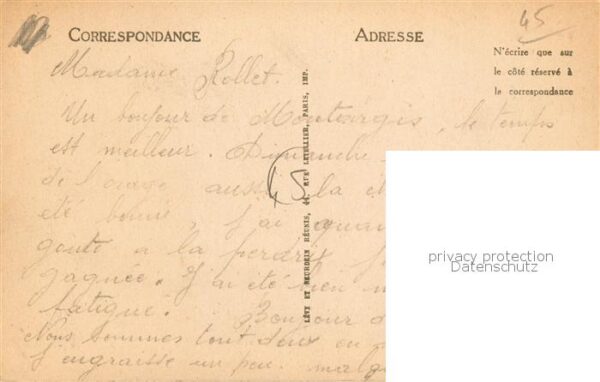 45
CORRESPONDANCE
ADRESSE
N'écrire que sur
le côté réservé à
la correspondance
Madame Rollet.
Un bonjour de Montargis, le temps
est meilleur. Dimanche
de l'orage aussi la
été bonne, j'ai
goute a la perdrix
gagnée. J'ai été bien
fatigué. Bonjour
Nous sommes tout deux en
J'engraisse un peu. malg
45
LÉVY ET NEURDEIN RÉUNIS, 44, RUE LETELLIER, PARIS, IMP.
privacy protection
Datenschutz